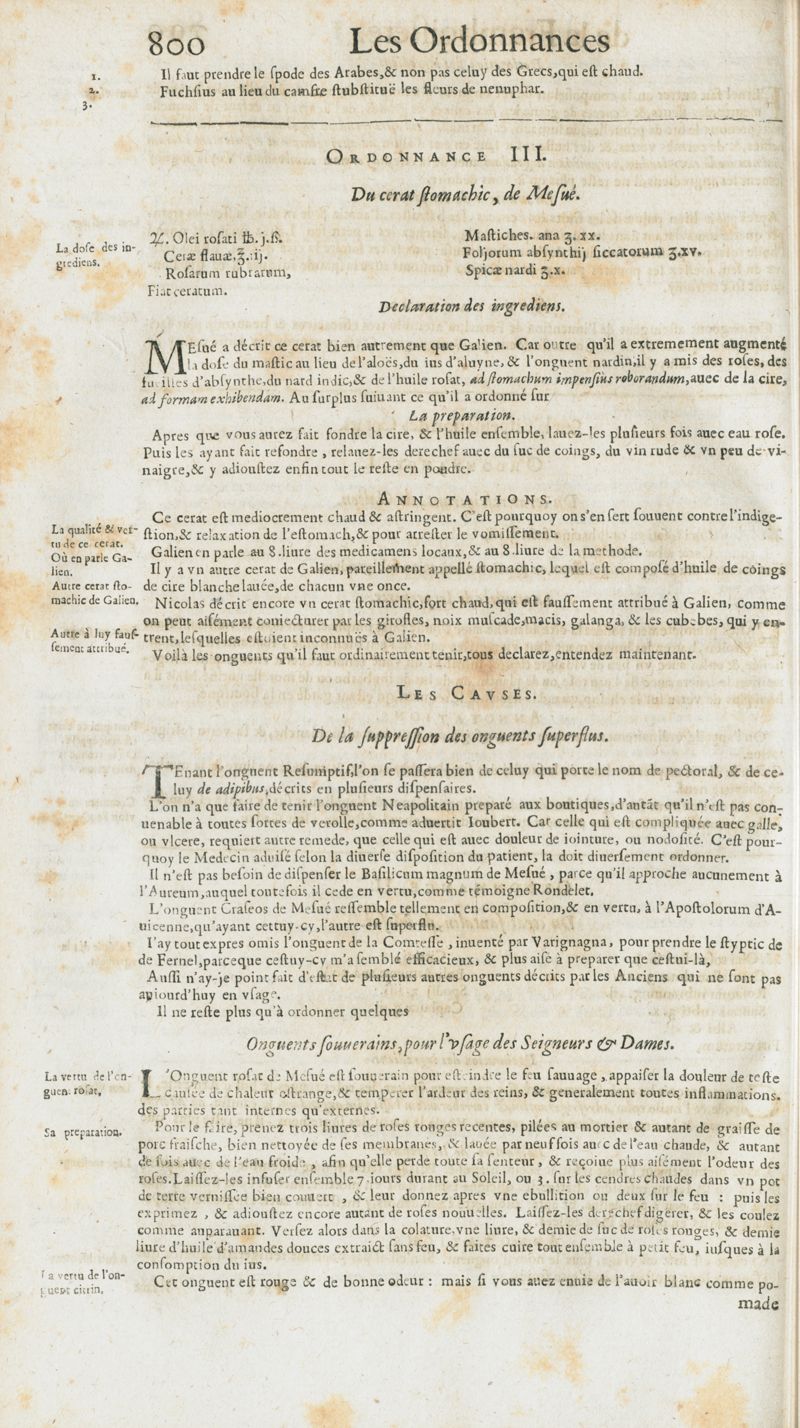 800 Les Ordonnances
1. Il faut prendre le ſpode des Arabes,& non pas celuy des Grecs,qui eſt chaud.
2. Fuchſius au lieu du camfre ſtubſtituë les fleurs de nenuphar.
3.
ORDONNANCE III.
Du cerat ſtomachic, de Meſué.
La doſe des in-
grediens.
♃. Olei roſati ℔. j.ſſ.
Ceræ flauæ,ʒ.iij.
Roſarum rubrarum,
Fiat ceratum.
Maſtiches. ana ʒ. xx.
Foljorum abſynthij ſiccatorum ʒ.xv.
Spicæ nardi ʒ.x.
Declaration des ingrediens.
MEſué a décrit ce cerat bien autrement que Galien. Car outre qu'il a extremement augmenté
la doſe du maſtic au lieu de l'aloës,du ius d'aluyne, & l'onguent nardin,il y a mis des roſes, des
fueilles d'abſynthe,du nard indic,& de l'huile roſat, ad ſtomachum impenſius roborandum,auec de la cire,
ad formam exhibendam. Au ſurplus ſuiuant ce qu'il a ordonné ſur
La preparation.
Apres que vous aurez fait fondre la cire, & l'huile enſemble, lauez-les pluſieurs fois auec eau roſe.
Puis les ayant fait refondre , relauez-les derechef auec du ſuc de coings, du vin rude & vn peu de vi-
naigre,& y adiouſtez enfin tout le reſte en poudre.
ANNOTATIONS.
La qualité & ver-
tu de ce cerat.
Où en parle Ga-
lien.
Autre cerat ſto-
machic de Galien.
Autre à luy fauſ-
ſement attribué.
Ce cerat eſt mediocrement chaud & aſtringent. C'eſt pourquoy on s'en ſert ſouuent contre l'indige-
ſtion,& relaxation de l'eſtomach,& pour arreſter le vomiſſement.
Galien en parle au 8.liure des medicamens locaux,& au 8.liure de la methode.
Il y a vn autre cerat de Galien, pareillement appellé ſtomachic, lequel eſt compoſé d'huile de coings
de cire blanche lauée,de chacun vne once.
Nicolas décrit encore vn cerat ſtomachic,fort chaud, qui eſt fauſſement attribué à Galien, comme
on peut aiſément coniecturer par les girofles, noix muſcade,macis, galanga, & les cubebes, qui y en-
trent,leſquelles eſtoient inconnuës à Galien.
Voilà les onguents qu'il faut ordinairement tenir,tous declarez,entendez maintenant.
LES CAVSES.
De la ſuppreſſion des onguents ſuperflus.
TEnant l'onguent Reſumptif,l'on ſe paſſera bien de celuy qui porte le nom de pectoral, & de ce-
luy de adipibus,décrits en pluſieurs diſpenſaires.
L'on n'a que faire de tenir l'onguent Neapolitain preparé aux boutiques,d'autãt qu'il n'eſt pas con-
uenable à toutes ſortes de verolle,comme aduertit Ioubert. Car celle qui eſt compliquée auec galle,
ou vlcere, requiert autre remede, que celle qui eſt auec douleur de iointure, ou nodoſité. C'eſt pour-
quoy le Medecin aduiſé ſelon la diuerſe diſpoſition du patient, la doit diuerſement ordonner.
Il n'eſt pas beſoin de diſpenſer le Baſilicum magnum de Meſué , parce qu'il approche aucunement à
l'Aureum,auquel toutefois il cede en vertu,comme témoigne Rondelet.
L'onguent Craſeos de Meſué reſſemble tellement en compoſition,& en vertu, à l'Apoſtolorum d'A-
uicenne,qu'ayant cettuy-cy,l'autre eſt ſuperflu.
I'ay tout expres omis l'onguent de la Comteſſe , inuenté par Varignagna, pour prendre le ſtyptic de
de Fernel,parceque ceſtuy-cy m'a ſemblé efficacieux, & plus aiſe à preparer que ceſtui-là,
Auſſi n'ay-je point fait d'eſtat de pluſieurs autres onguents décrits par les Anciens qui ne ſont pas
aujourd'huy en vſage.
Il ne reſte plus qu'à ordonner quelques
Onguents ſouuerains, pour l'vſage des Seigneurs & Dames.
La vertu de l'on-
guent roſat.
L'Onguent roſat de Meſué eſt ſouuerain pour eſteindre le feu ſauuage , appaiſer la douleur de teſte
cauſée de chaleur eſtrange,& temperer l'ardeur des reins, & generalement toutes inflammations.
des parties tant internes qu'externes.
Sa preparation.
Pour le faire, prenez trois liures de roſes rouges recentes, pilées au mortier & autant de graiſſe de
porc fraiſche, bien nettoyée de ſes membranes, & lauée par neuf fois auec de l'eau chaude, & autant
de fois auec de l'eau froide , afin qu'elle perde toute ſa ſenteur , & reçoiue plus aiſément l'odeur des
roſes.Laiſſez-les infuſer enſemble 7.iours durant au Soleil, ou 3. ſur les cendres chaudes dans vn pot
de terre verniſſée bien couuert , & leur donnez apres vne ebullition ou deux ſur le feu : puis les
exprimez , & adiouſtez encore autant de roſes nouuelles. Laiſſez-les derechef digerer, & les coulez
comme auparauant. Verſez alors dans la colature,vne liure, & demie de ſuc de roſes rouges, & demie
liure d'huile d'amandes douces extraict ſans feu, & faites cuire tout enſemble à petit feu, iuſques à la
conſomption du ius.
La vertu de l'on-
guent citrin.
Cet onguent eſt rouge & de bonne odeur : mais ſi vous auez enuie de l'auoir blanc comme po-
made